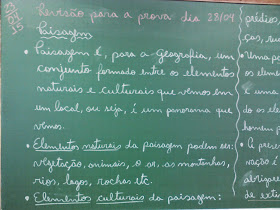 Revisão para a prova dia 28/04
Paisagem
• Paisagem é, para a geografia, um
conjunto formado entre os elementos
naturais e culturais que vemos em
um local, ou seja, é um panorama que
vemos.
• Elementos naturais da paisagem podem ser:
vegetação, animais, o ar, as montanhas,
rios, lagos, rochas etc.
• Elementos culturais da paisagem:
prédio
ças, ru
os elem
é uma
do os el
• A prese
vação é
de ext